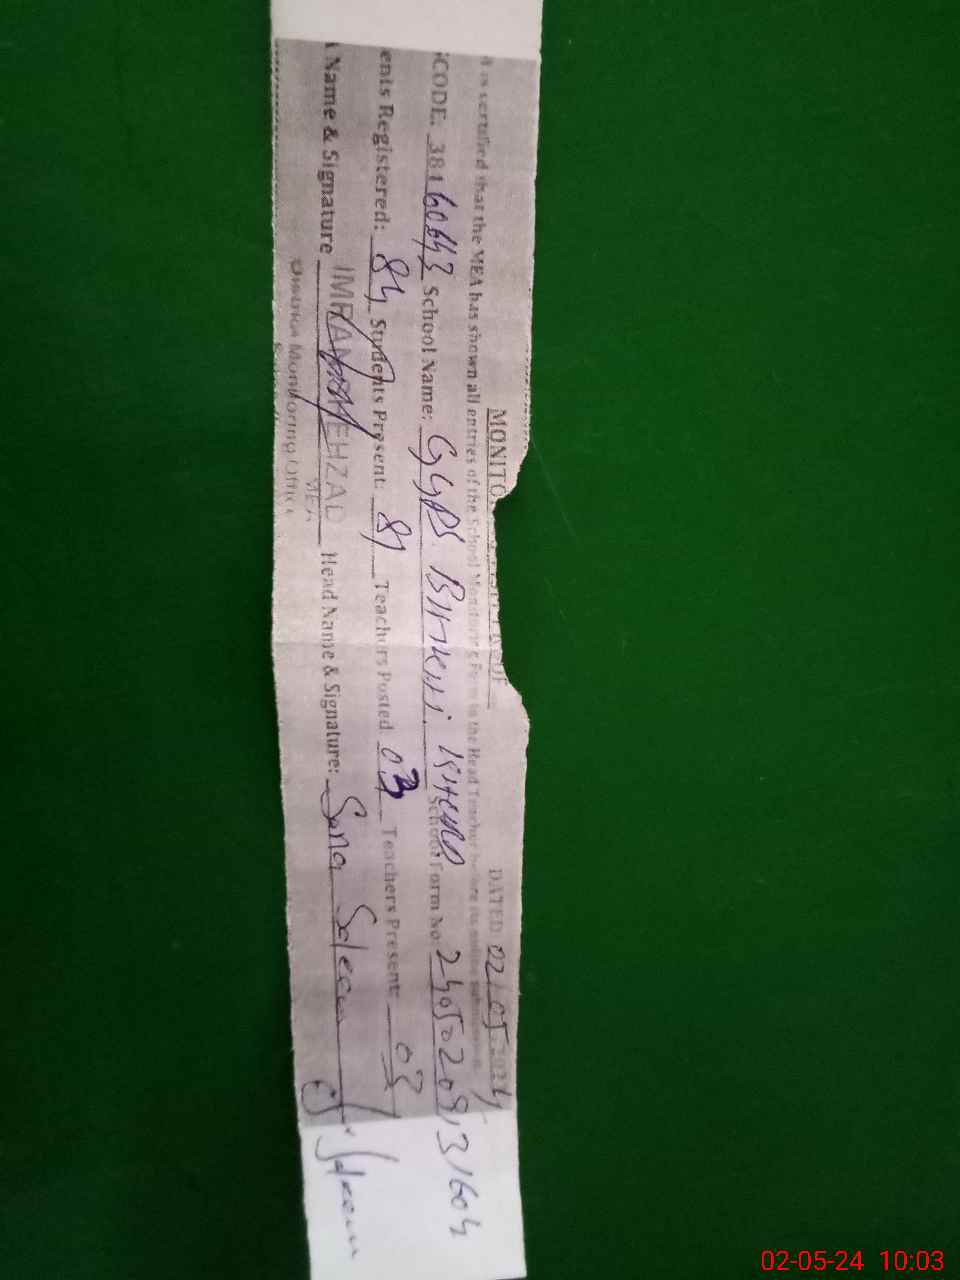 MONITO
DATED: 02/05/2024
It is certified that the MEA has shown all entries of the School Monitoring Form to the Head Teacher before its online submission.
iCODE: 38160643 School Name: GGPS. School Form No: 2405020931604
ents Registered: 84 Students Present: 81 Teachers Posted 03 Teachers Present: 03
Name & Signature IMRAN SHEHZAD Head Name & Signature: Sana Saleem
MEA
District Monitoring Office
Saleem
02-05-24 10:03